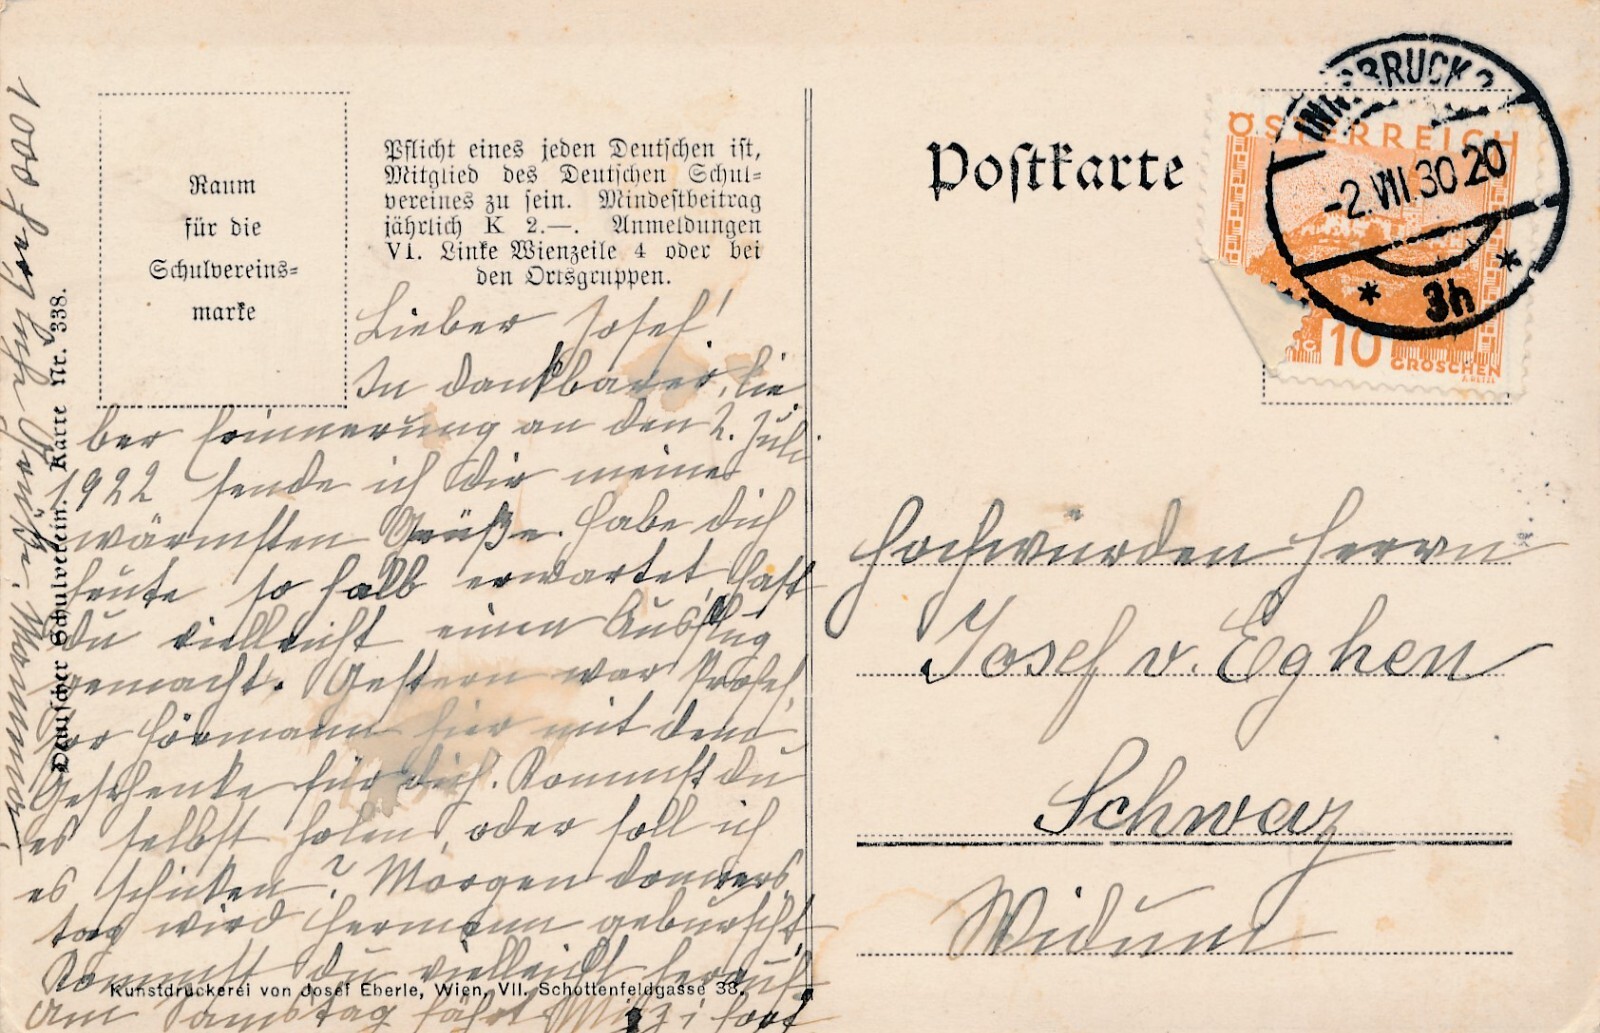 Raum
für die
Schulvereins-
marke
Pflicht eines jeden Deutschen ist,
Mitglied des Deutschen Schul-
vereines zu sein. Mindestbeitrag
jährlich K 2.—. Anmeldungen
VI. Linke Wienzeile 4 oder bei
den Ortsgruppen.
Postkarte
ÖSTERREICH
10
GROSCHEN
INNSBRUCK 2
-2.VII.30 20
* 3h *
Lieber Josef!
In dankbarer, lie
ber Erinnerung an den 2. Juli
1922 sende ich dir meine
wärmsten Grüße. Habe dich
heute so halb erwartet, hast
du vielleicht einen Ausflug
gemacht. Gestern war Profes,
sor Hörmann hier mit dem
Geschenke für dich. Kommst du
es selbst holen, oder soll ich
es schicken? Morgen Donners,
tag wird Hermann geburscht,
Kommst du vielleicht herauf
Am Samstag fährt Mizi fort
1000 herzliche Grüße.
Hochwürden Herrn
Josef v. Eghen
Schwaz
Widum
Deutscher Schulverein. Karte Nr. 338.
Kunstdruckerei von Josef Eberle, Wien, VII. Schottenfeldgasse 38.